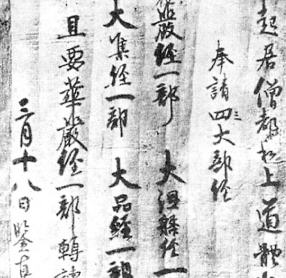 起居僧都和上道體
奉請四大部經
嚴經一部 大涅槃經一
大集經一部 大品經一部
且要華嚴經一部 轉讀
三月十八日鑒真